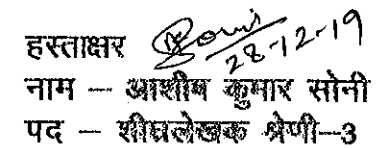 हस्ताक्षर Soni
28-12-19
नाम – आशीष कुमार सोनी
पद – शीघ्रलेखक श्रेणी–3